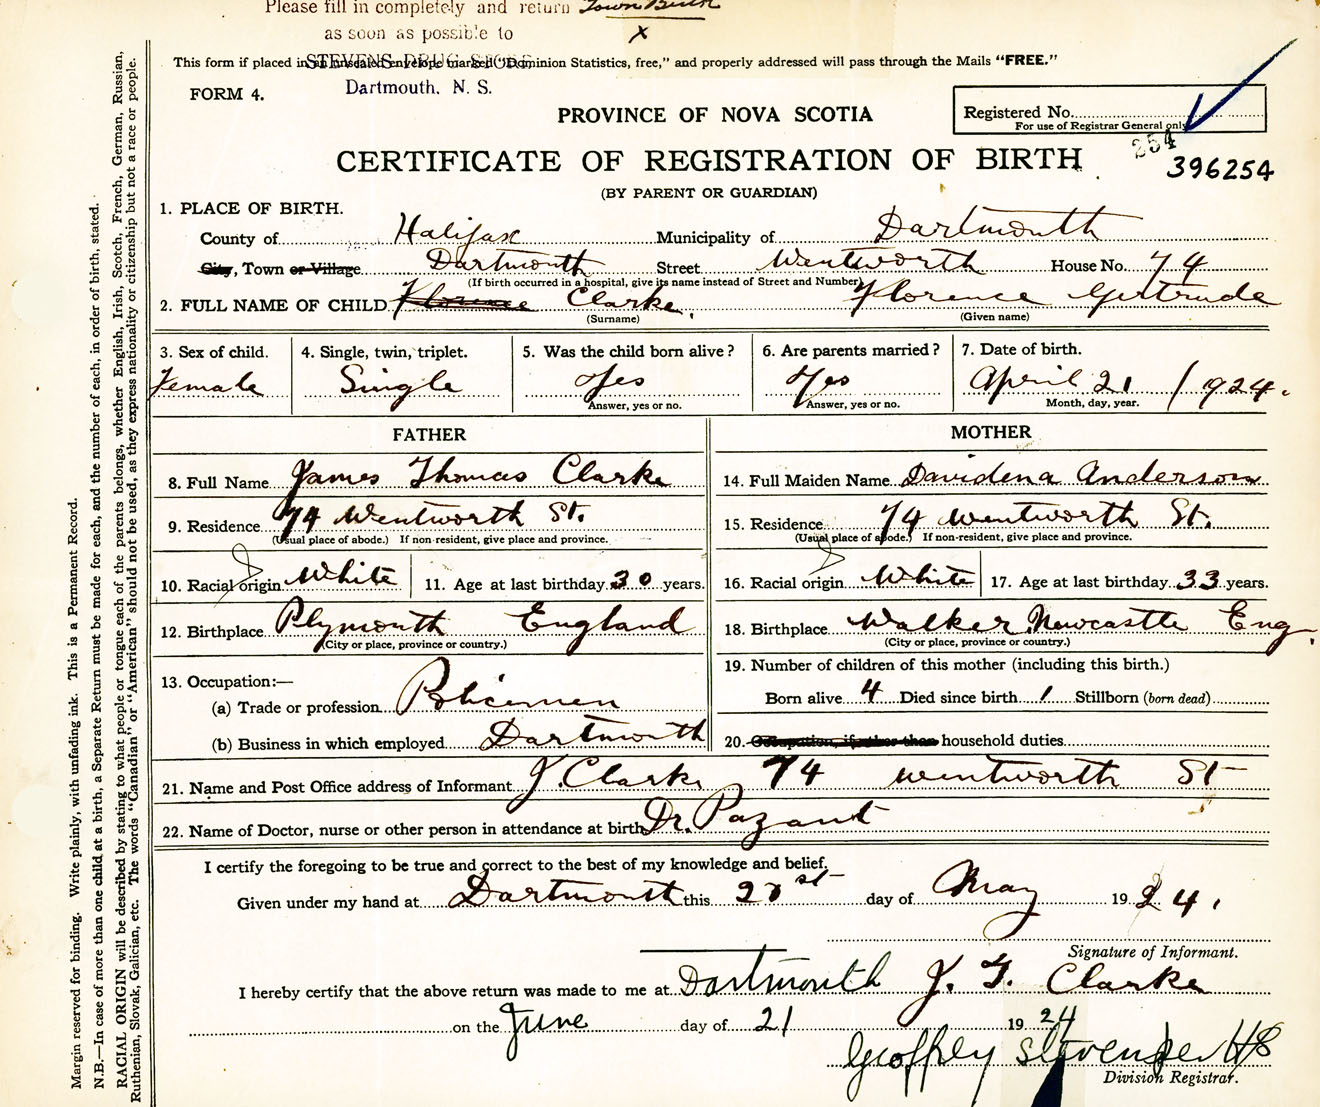 Please fill in completely and return Town Burth
as soon as possible to
X
STEVENS DRUG STORE
This form if placed in an unsealed envelope marked "Dominion Statistics, free," and properly addressed will pass through the Mails "FREE."
Dartmouth, N. S.
FORM 4.
PROVINCE OF NOVA SCOTIA
Registered No.
For use of Registrar General only
254
396254
CERTIFICATE OF REGISTRATION OF BIRTH
(BY PARENT OR GUARDIAN)
1. PLACE OF BIRTH.
County of Halifax Municipality of Dartmouth
City, Town or Village Dartmouth Street Wentworth House No. 74
(If birth occurred in a hospital, give its name instead of Street and Number)
2. FULL NAME OF CHILD Florence Clarke, Florence Gertrude
(Surname) (Given name)
3. Sex of child. 4. Single, twin, triplet. 5. Was the child born alive? 6. Are parents married? 7. Date of birth.
Female Single Yes Yes April 21 / 1924.
Answer, yes or no. Answer, yes or no. Month, day, year.
FATHER MOTHER
8. Full Name James Thomas Clarke 14. Full Maiden Name Davidena Anderson
9. Residence 74 Wentworth St. 15. Residence 74 Wentworth St.
(Usual place of abode.) If non-resident, give place and province. (Usual place of abode.) If non-resident, give place and province.
10. Racial origin White 11. Age at last birthday 30 years. 16. Racial origin White 17. Age at last birthday 33 years.
12. Birthplace Plymouth England 18. Birthplace Walker Newcastle Eng.
(City or place, province or country.) (City or place, province or country.)
13. Occupation:— 19. Number of children of this mother (including this birth.)
(a) Trade or profession Policemen Born alive 4 Died since birth 1 Stillborn (born dead)
(b) Business in which employed Dartmouth 20. Occupation, if other than household duties
21. Name and Post Office address of Informant J. Clarke 74 Wentworth St
22. Name of Doctor, nurse or other person in attendance at birth Dr. Pazant
I certify the foregoing to be true and correct to the best of my knowledge and belief.
Given under my hand at Dartmouth this 20 st day of May 1924.
Signature of Informant.
I hereby certify that the above return was made to me at Dartmouth J. T. Clarke
on the June day of 21 1924
Geoffrey Stevens
Division Registrar.
Margin reserved for binding. Write plainly, with unfading ink. This is a Permanent Record.
N.B.—In case of more than one child at a birth, a Separate Return must be made for each, and the number of each, in order of birth, stated.
RACIAL ORIGIN will be described by stating to what people or tongue each of the parents belongs, whether English, Irish, Scotch, French, German, Russian,
Ruthenian, Slovak, Galician, etc. The words "Canadian" or "American" should not be used, as they express nationality or citizenship but not a race or people.